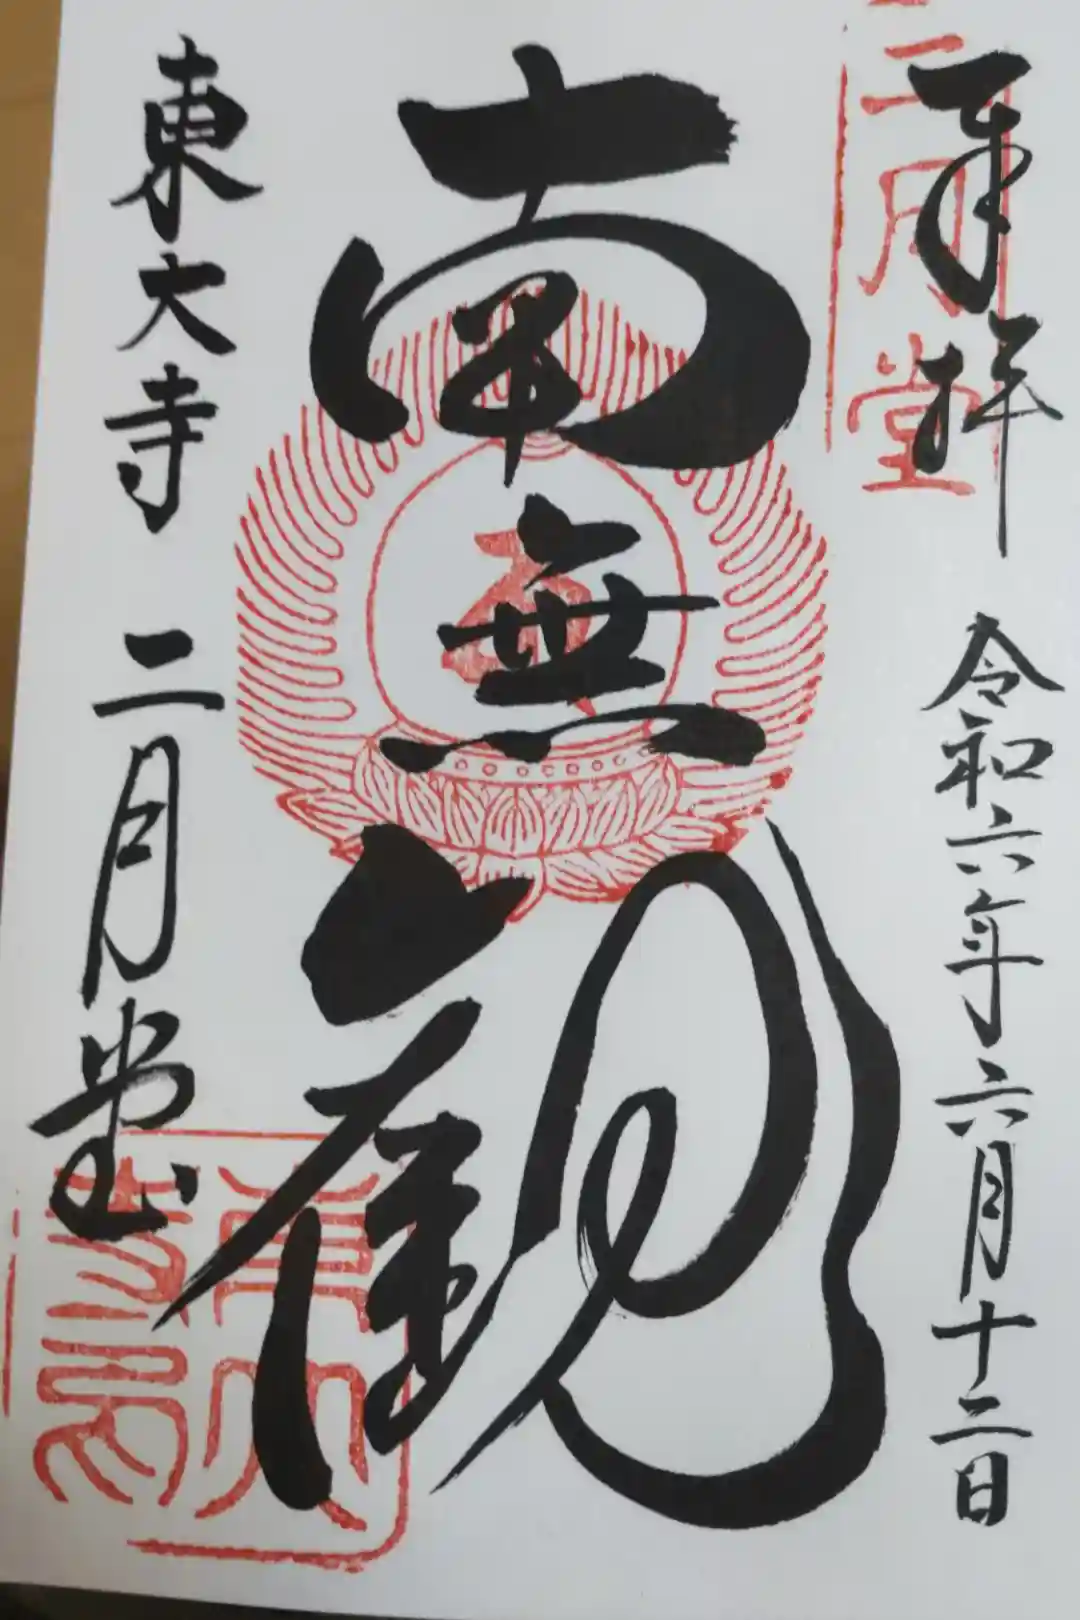 奉拝
令和六年六月十二日
南無観
東大寺 二月堂
二月堂